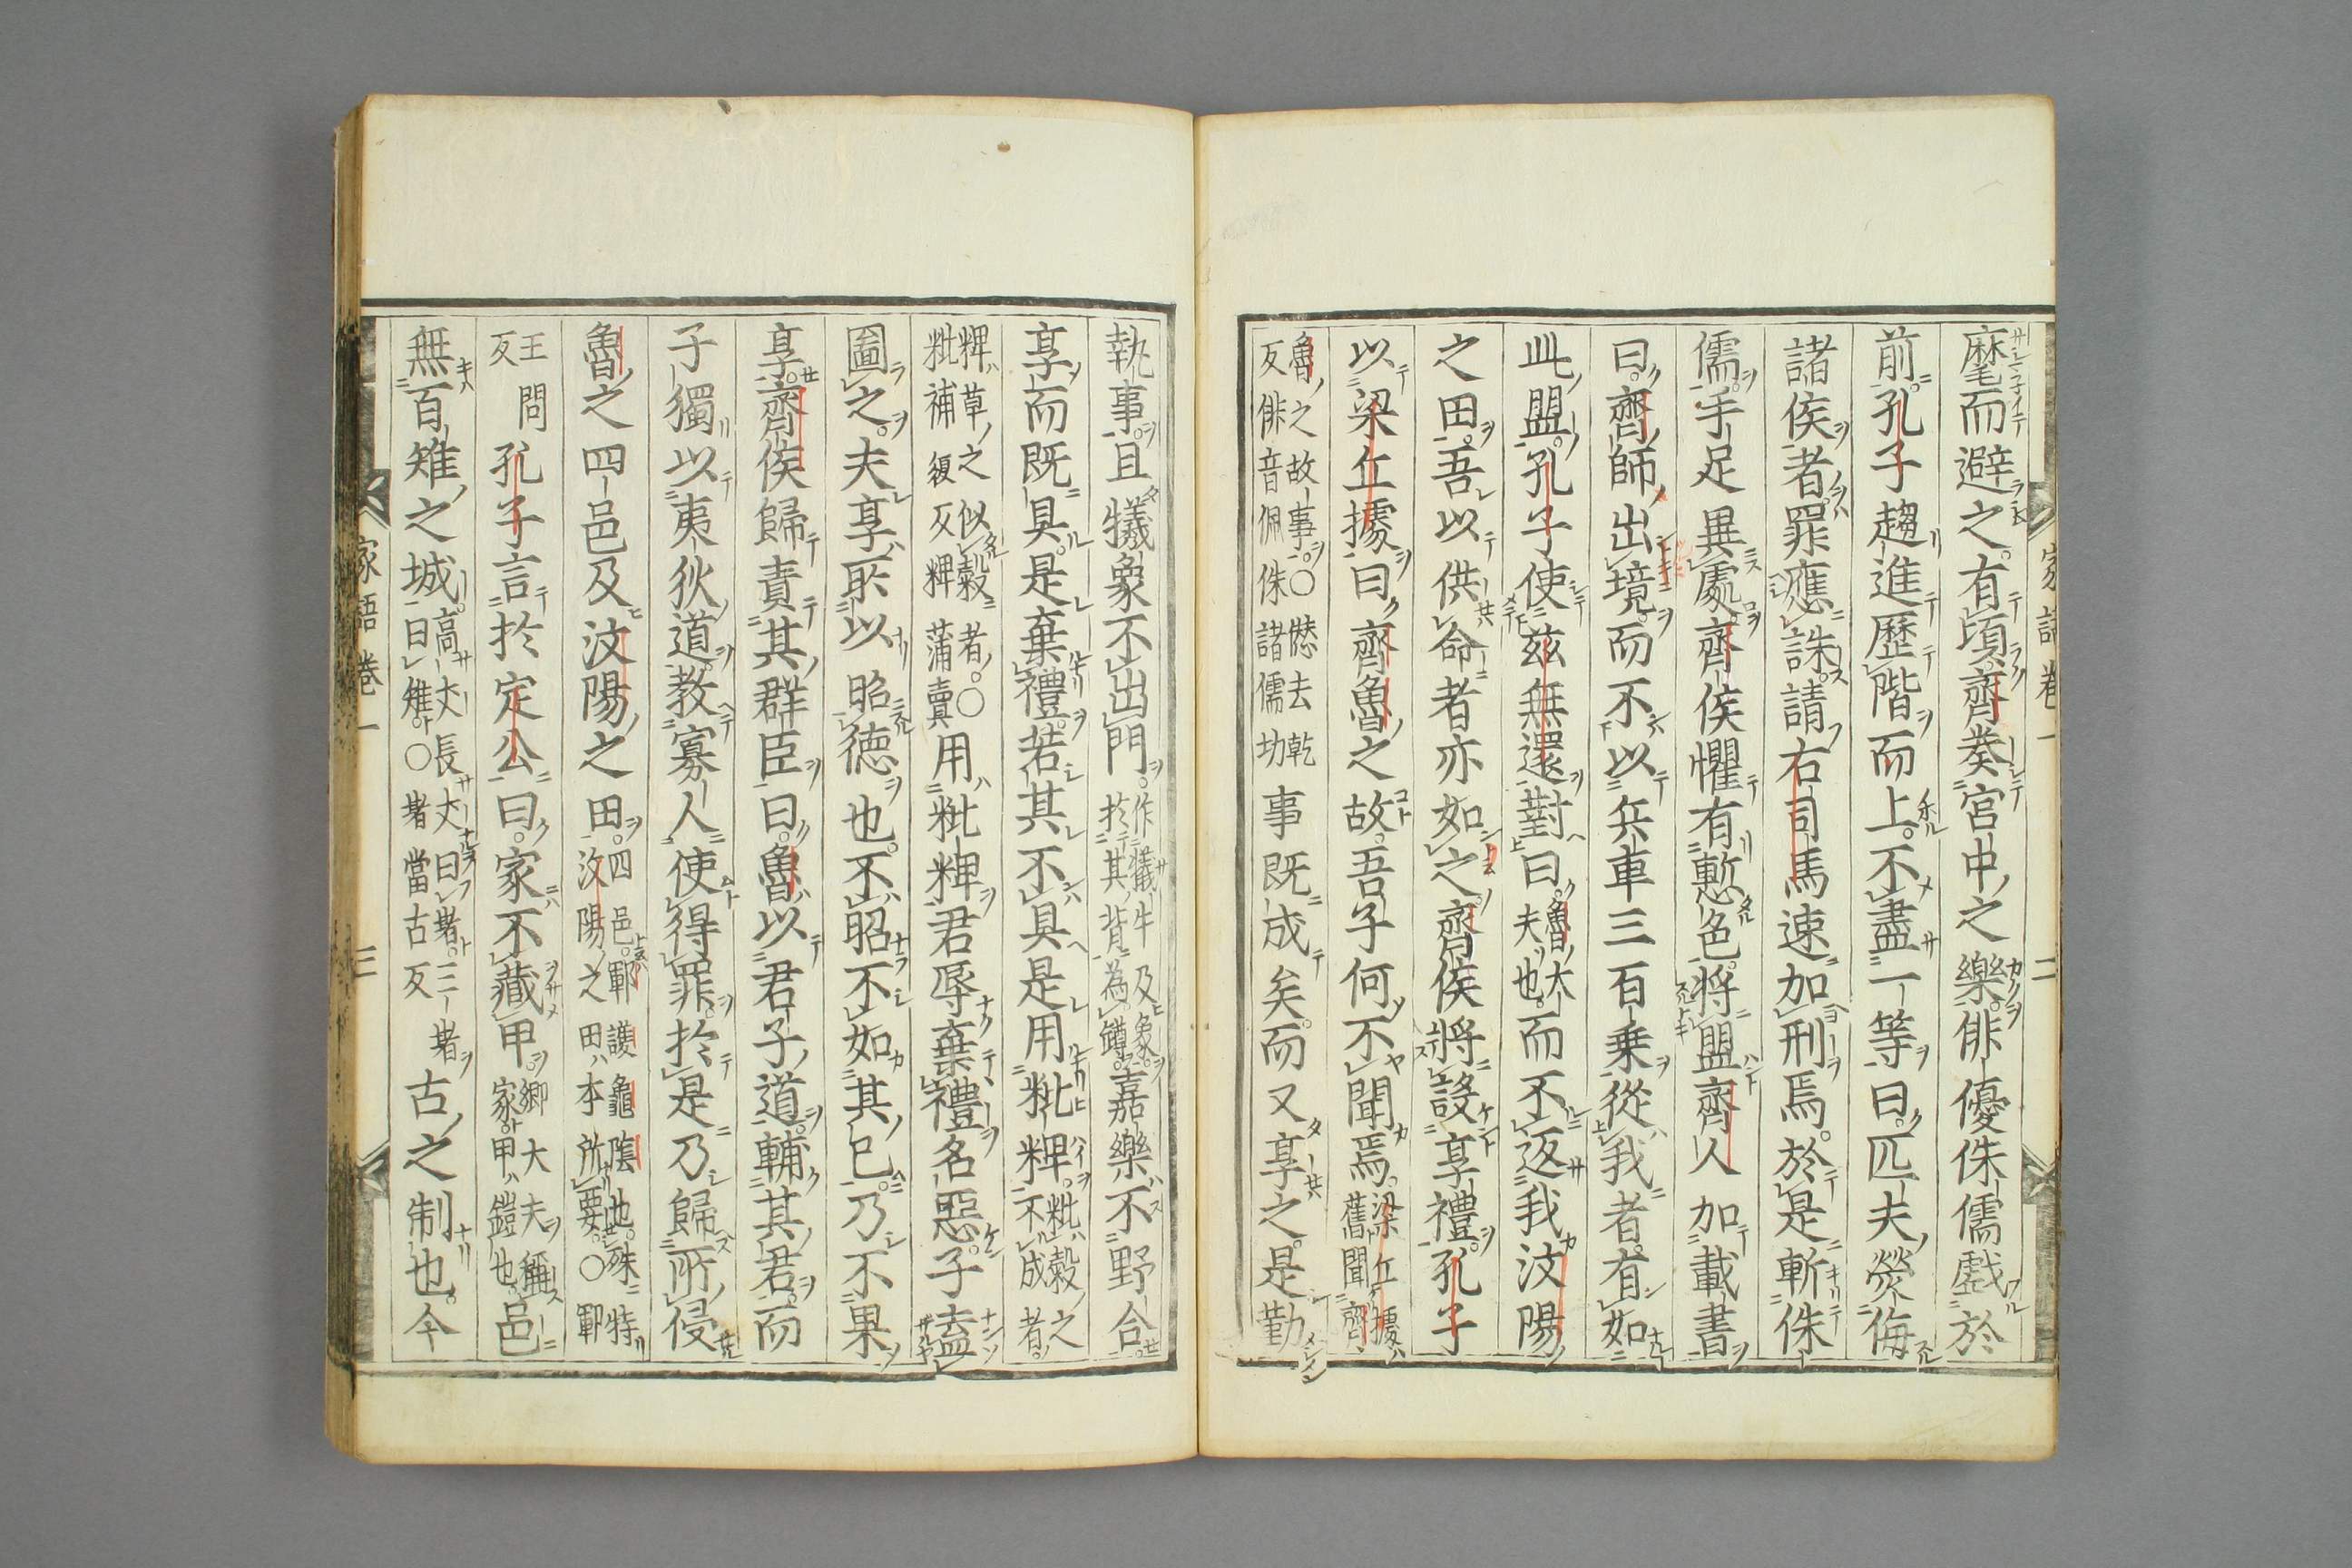 麾而避之。有頃。齊奏宮中之樂。俳優侏儒戲於
前。孔子趨進歷階而上。不盡一等曰。匹夫熒侮
諸侯者。罪應誅。請右司馬速加刑焉。於是斬侏
儒。手足異處。齊侯懼有慙色。將盟齊人加載書
曰。齊師出境。而不以兵車三百乗從我者。有如
此盟。孔子使茲無還對曰。魯大夫也。而不返我汶陽
之田。吾以供命者亦如之。齊侯將設享禮。孔子
以梁丘據曰。齊魯之故。吾子何不聞焉。梁丘據舊聞齊
魯之故事。○憖去乾反俳音佩侏諸儒切事既成矣。而又享之。是勤
家語卷一 二
執事。且犧象不出門。作犧牛及象。於其背為罇。嘉樂不野合。
享而既具。是棄禮。若其不具。是用粃粺。粃穀之不成者。
粺草之似穀者。○粃補復反粺蒲賣用粃粺君辱。棄禮名惡。子盍
圖之。夫享所以昭德也。不昭不如其已。乃不果
享。齊侯歸責其群臣曰。魯以君子道。輔其君。而
子獨以夷狄道。教寡人使得罪。於是乃歸所侵
魯之四邑及汶陽之田。四邑。鄆讙龜陰也。殊特汶陽之田本所要。○鄆
王問反孔子言於定公曰。家不藏甲。卿大夫稱家。甲鎧也。邑
無百雉之城。高丈長丈曰堵。三堵曰雉。○堵當古反古之制也。今
家語卷一 三